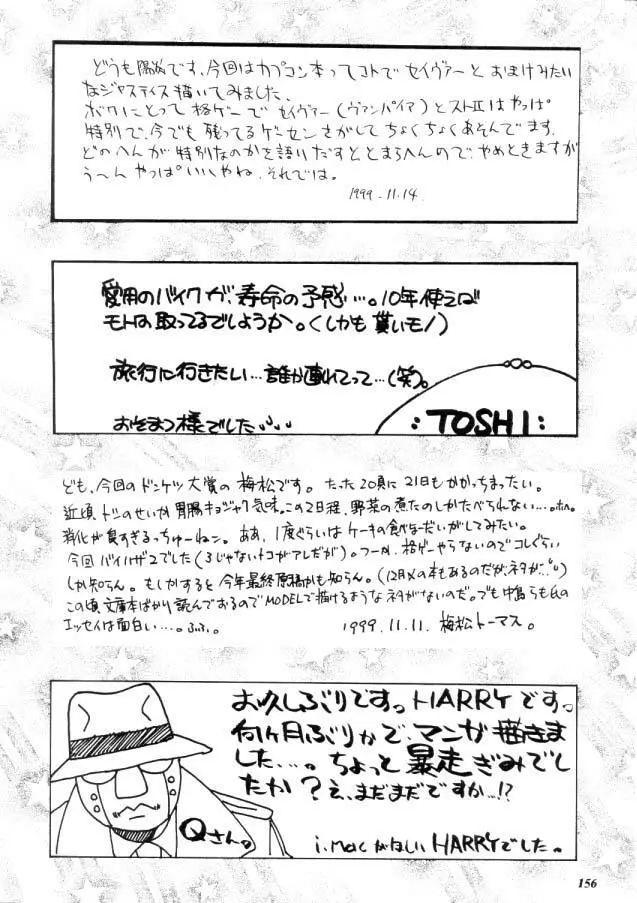 どうも陽気です、今回はカプコン本ってコトでセイヴァーとおまけみたい
なジャスティス描いてみました。
ボクにとって格ゲーでセイヴァー(ヴァンパイア)とストⅡはやっぱ
特別で、今でも残ってるゲーセンさがしてちょくちょくあそんでます。
どのへんが特別なのかを語りだすととまらへんので、やめときますが
う〜んやっぱいいやね、それでは。
1999.11.14
愛用のバイクが、寿命の予感…。10年使えば
モトは取ってるでしょうか。(しかも貰いモノ)
旅行に行きたい…誰か連れてって…(笑)。
おそまつ様でした
:TOSHI:
ども、今回のドンケツ大賞の梅松です。たった20頁に21日もかかっちまったい。
近頃、トシのせいか胃腸キョジャク気味。この2日程、野菜の煮たのしかたべられない…。
消化が良すぎるっちゅーねン。ああ、1度ぐらいはケーキの食べほーだいがしてみたい。
今回バイハザ2でした(3じゃないトコがアレだが)。つーか、格ゲーやらないのでコレぐらい
しか知らん。もしかすると今年最終原稿かも知らん。(12月〆の本もあるのだが、ネタが…)
この頃、文庫本ばかり読んでおるのでMODELで描けるようなネタがないのだ。でも中島らも氏の
エッセイは面白い…。ふふ。
1999.11.11. 梅松トーマス。
お久しぶりですっHARRYですっ
何ヶ月ぶりかで、マンガ描きま
した…。ちょっと暴走ぎみでし
たか?え、まだまだですか…!?
Qさん。
i.Macがほしい HARRYでした。
156